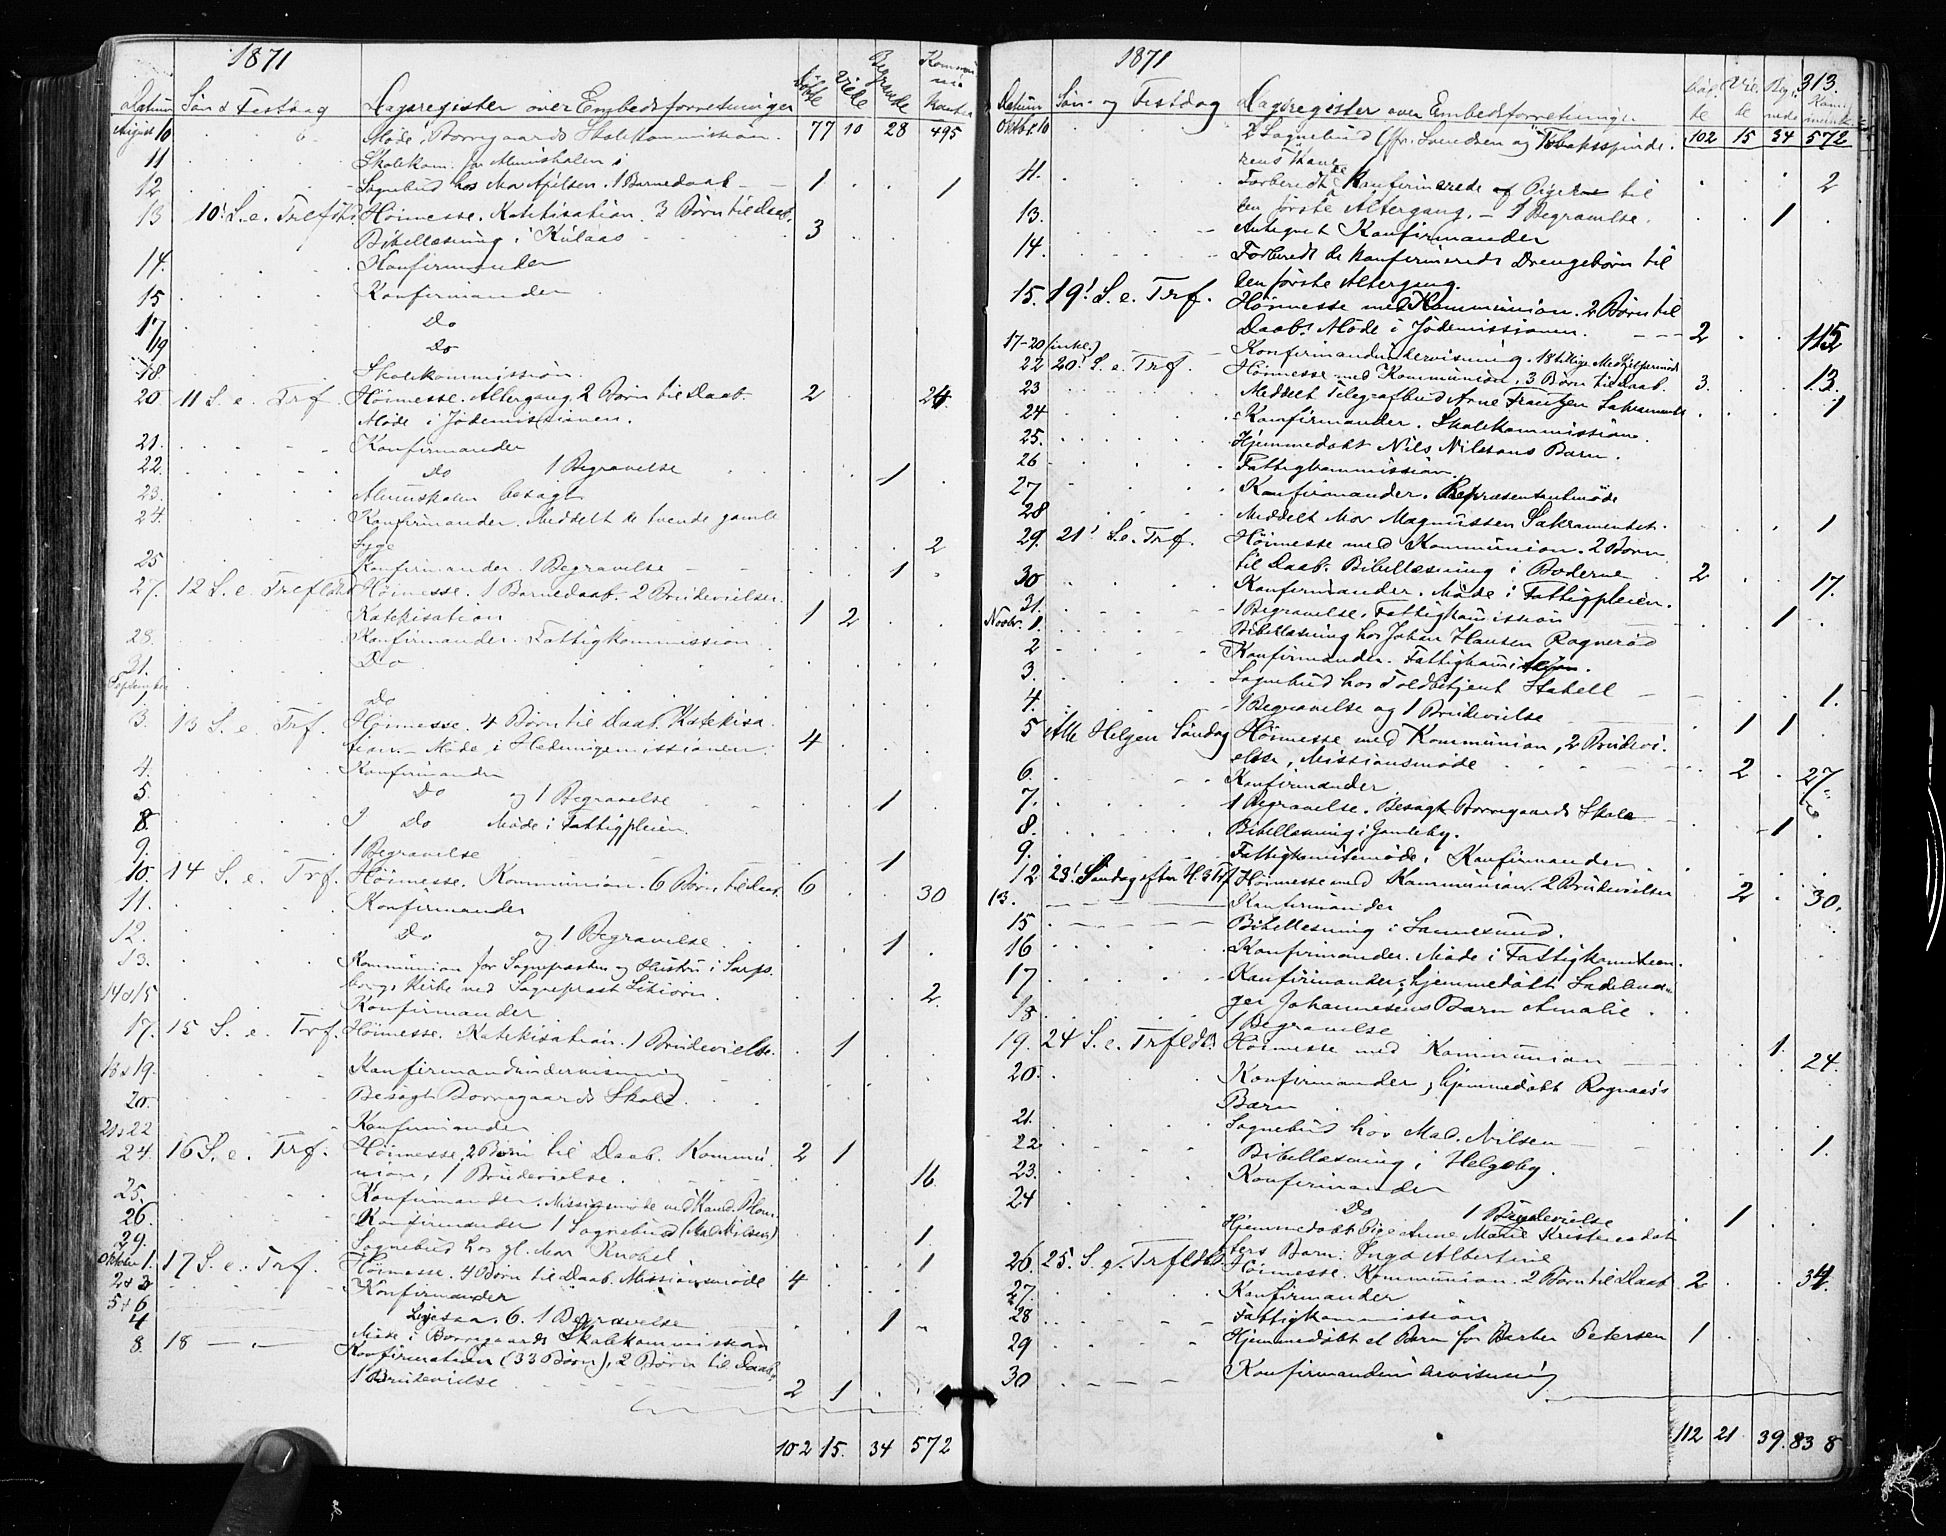 1871
Datum Søn & Festdag Dagsregister over Embedsforretninger Døbte Viede Begravede Kommuni kanter
August 10 Møde i Borregaards Skolekommission. 77 10 28 495
11 Skolekom. for Almueskolen i
12 Sognebud hos Mor Apelsen. 1 Barnedaab 1 1
13 10! S. e. Trefth Høimesse. Katekisation. 3 Børn til Daab.
Bibellæsning i Kulaas 3
14. Konfirmander
15 Konfirmander
17 Do
19 Do
18. Skolekommission.
20. 11 S. e. Trf. Høimesse. Altergang. 2 Børn til Daab. 2 24
Møde i Jødemissionen.
21. Konfirmander
22. Do 1 Begravelse 1
23. Almueskolen besøgt
24. Konfirmander. Meddelt de tvende gamle
Syge 2
25 Konfirmander. 1 Begravelse 1
27. 12 S. e. Trefldh Høimesse. 1 Barnedaab. 2 Brudevielser.
Katekisation 1 2
28. Konfirmander. Fattigkommission
31. Do
1. Do
3. 13 S. e. Trf. Høimesse. 4 Børn til Daab. Katekisa
tion - Møde i Hedningemissionen 4
4. Konfirmander
5. Do og 1 Begravelse 1
8. Do Møde i Fattigpleien.
9. 1 Begravelse 1
10. 14 S. e. Trf. Høimesse. Kommunion. 6 Børn til Daab. 6 30
11. Konfirmander
12. Do og 1 Begravelse. 1
13. Kommunion for Sognepræsten og Hustru i Sarps
borgs Kirke ved Sogneprest 2
14 & 15 Konfirmander
17. 15 S. e. Trf. Høimesse. Katekisation. 1 Brudevielse. 1
18 & 19. Konfirmandundervisning
20. Besøgt Borregaards Skole.
21 & 22 Konfirmander
24. 16 S. e. Trf. Høimesse, 2 Børn til Daab. Kommu 2 1
nion, 1 Brudevielse. 16
25. Konfirmander. Missionsmøde ved Kand. Blom.
26. Konfirmander 1 Sognebud (Mad. Nilsen) 1
29. Sognebud hos gl. Mor Knobel 1
Oktober 1. 17 S. e. Trf. Høimesse. 4 Børn til Daab. Missionsmøde 4
2 & 3 Konfirmander
5 & 6 Ligesaa. 6. 1 Begravelse 1
4 Møde i Borregaards Skolekommission
8. 18 — „ — Konfirmation (33 Børn), 2 Børn til Daab,
1 Brudevielse 2 1
102 15. 34 572
1871 313.
Datum Søn- og Festdag Dagsregister over Embedsforretninger Døb te Vie. de Beg. vede Kom munik.
Oktbr. 10 2 Sognebud (fr. Svendsen og Tobaksspinde. 102 15 34 572
rens Kone 2
11. Forberedt de Konfirmerede Piger til
den første Altergang. - 1 Begravelse. 1
13. Antegnet Konfirmander
14. Forberedt de konfirmerede Drengebørn til
den første Altergang.
15. 19! S. e. Trf. Høimesse med Kommunion. 2 Børn til
Daab. Møde i Jødemissionen. 2 115
17-20 (inkl.) Konfirmandundervisning. 18 tillige
22 20! S. e. Trf. Høimesse med Kommunion, 3 Børn til Daab. 3. 13.
23 Meddelt Telegrafbud Arne Frantzen Sakramentet 1
24 Konfirmander. Skolekommission.
25. Hjemmedøbt Nils Nilssons Barn.
26 Fattigkommission.
27 Konfirmander. Repræsentantmøde
28 Meddelt Mor Magnussen Sakramentet. 1
29. 21! S. e. Trf. Høimesse med Kommunion. 2 Børn
til Daab. Bibellæsning i Boderne 2 17.
30 Konfirmander. Møde i Fattigpleien.
31. 1 Begravelse. Fattigkommission 1
Novbr. 1. Bibellæsning hos Johan Hansen Rognerød
2 Konfirmander. Fattigkommission.
3. Sognebud hos Toldbetjent Stabell 1.
4. 1 Begravelse og 1 Brudevielse 1 1
5 Alle Helgen Søndag Høimesse med Kommunion, 2 Brudevi
else, Missionsmøde 2 27
6. Konfirmander
7. 1 Begravelse. Besøgt Borregaards Skole 1
8. Bibellæsning i Gamleby.
9. Fattigkomitemøde. Konfirmander
12 23! Søndag efter H. 3 Trf Høimesse med Kommunion. 2 Brudevielser 2 30.
13. Konfirmander
15 Bibellesning i Sannesund.
16 Konfirmander. Møde i Fattigkomiteen.
17 Konfirmander; hjemmedøbt Sadelma-
18 ger Johannesens Barn Amalie.
1 Begravelse 1.
19. 24 S. e. Trfldh. Høimesse med Kommunion 24.
20. Konfirmander, hjemmedøbt Rognaas's
Barn
21. Sognebud hos Mad. Nilsen 1.
22 Bibellæsning i Helgeby.
23. Konfirmander
24 Do 1 Brudevielse 1
Hjemmedøbt Pige Anne Marie Kristensdat
ters Barn: Inga Albertine
26. 25. S. e. Trfldh. Høimesse. Kommunion. 2 Børn til Daab 2 34.
27. Konfirmander
28 Fattigkommission
29 Hjemmedøbt et Barn for Barber Petersen 1
30 Konfirmandundervisning
112 21 39. 838